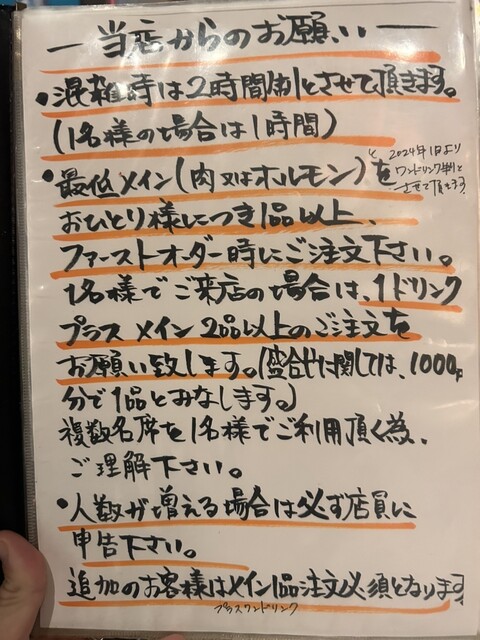 ― 当店からのお願い ―
・混雑時は2時間制とさせて頂きます。
(1名様の場合は1時間)
・最低メイン(肉又はホルモン)を
と
2024年1月より
ワンドリンク制と
させて頂きます。
おひとり様につき1品以上、
ファーストオーダー時にご注文下さい。
1名様でご来店の場合は、1ドリンク
プラス メイン2品以上のご注文を
お願い致します。(盛合せに関しては、1000円
分で1品とみなします。)
複数名席を1名様でご利用頂く為、
ご理解下さい。
・人数が増える場合は必ず店員に
申告下さい。
追加のお客様はメイン1品注文必須となります
プラスワンドリンク